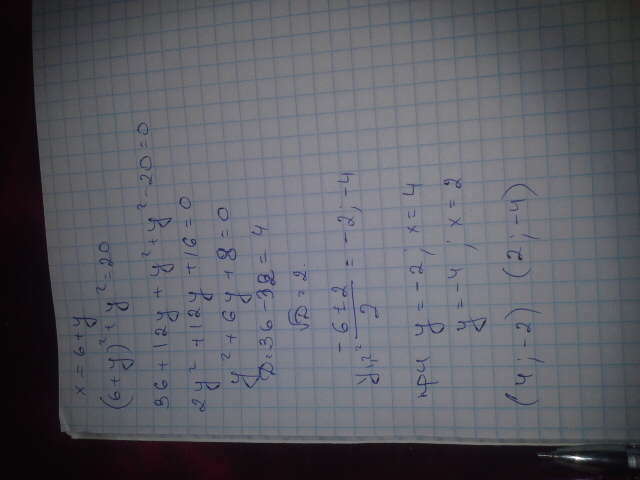 x = 6+y
(6+y)²+y²=20
36+12y+y²+y²-20=0
2y²+12y+16=0
y²+6y+8=0
D=36-32=4
√D=2.
y₁,₂=(-6±2)/2=-2;-4
при y=-2; x=4
y=-4; x=2
(4;-2) (2;-4)